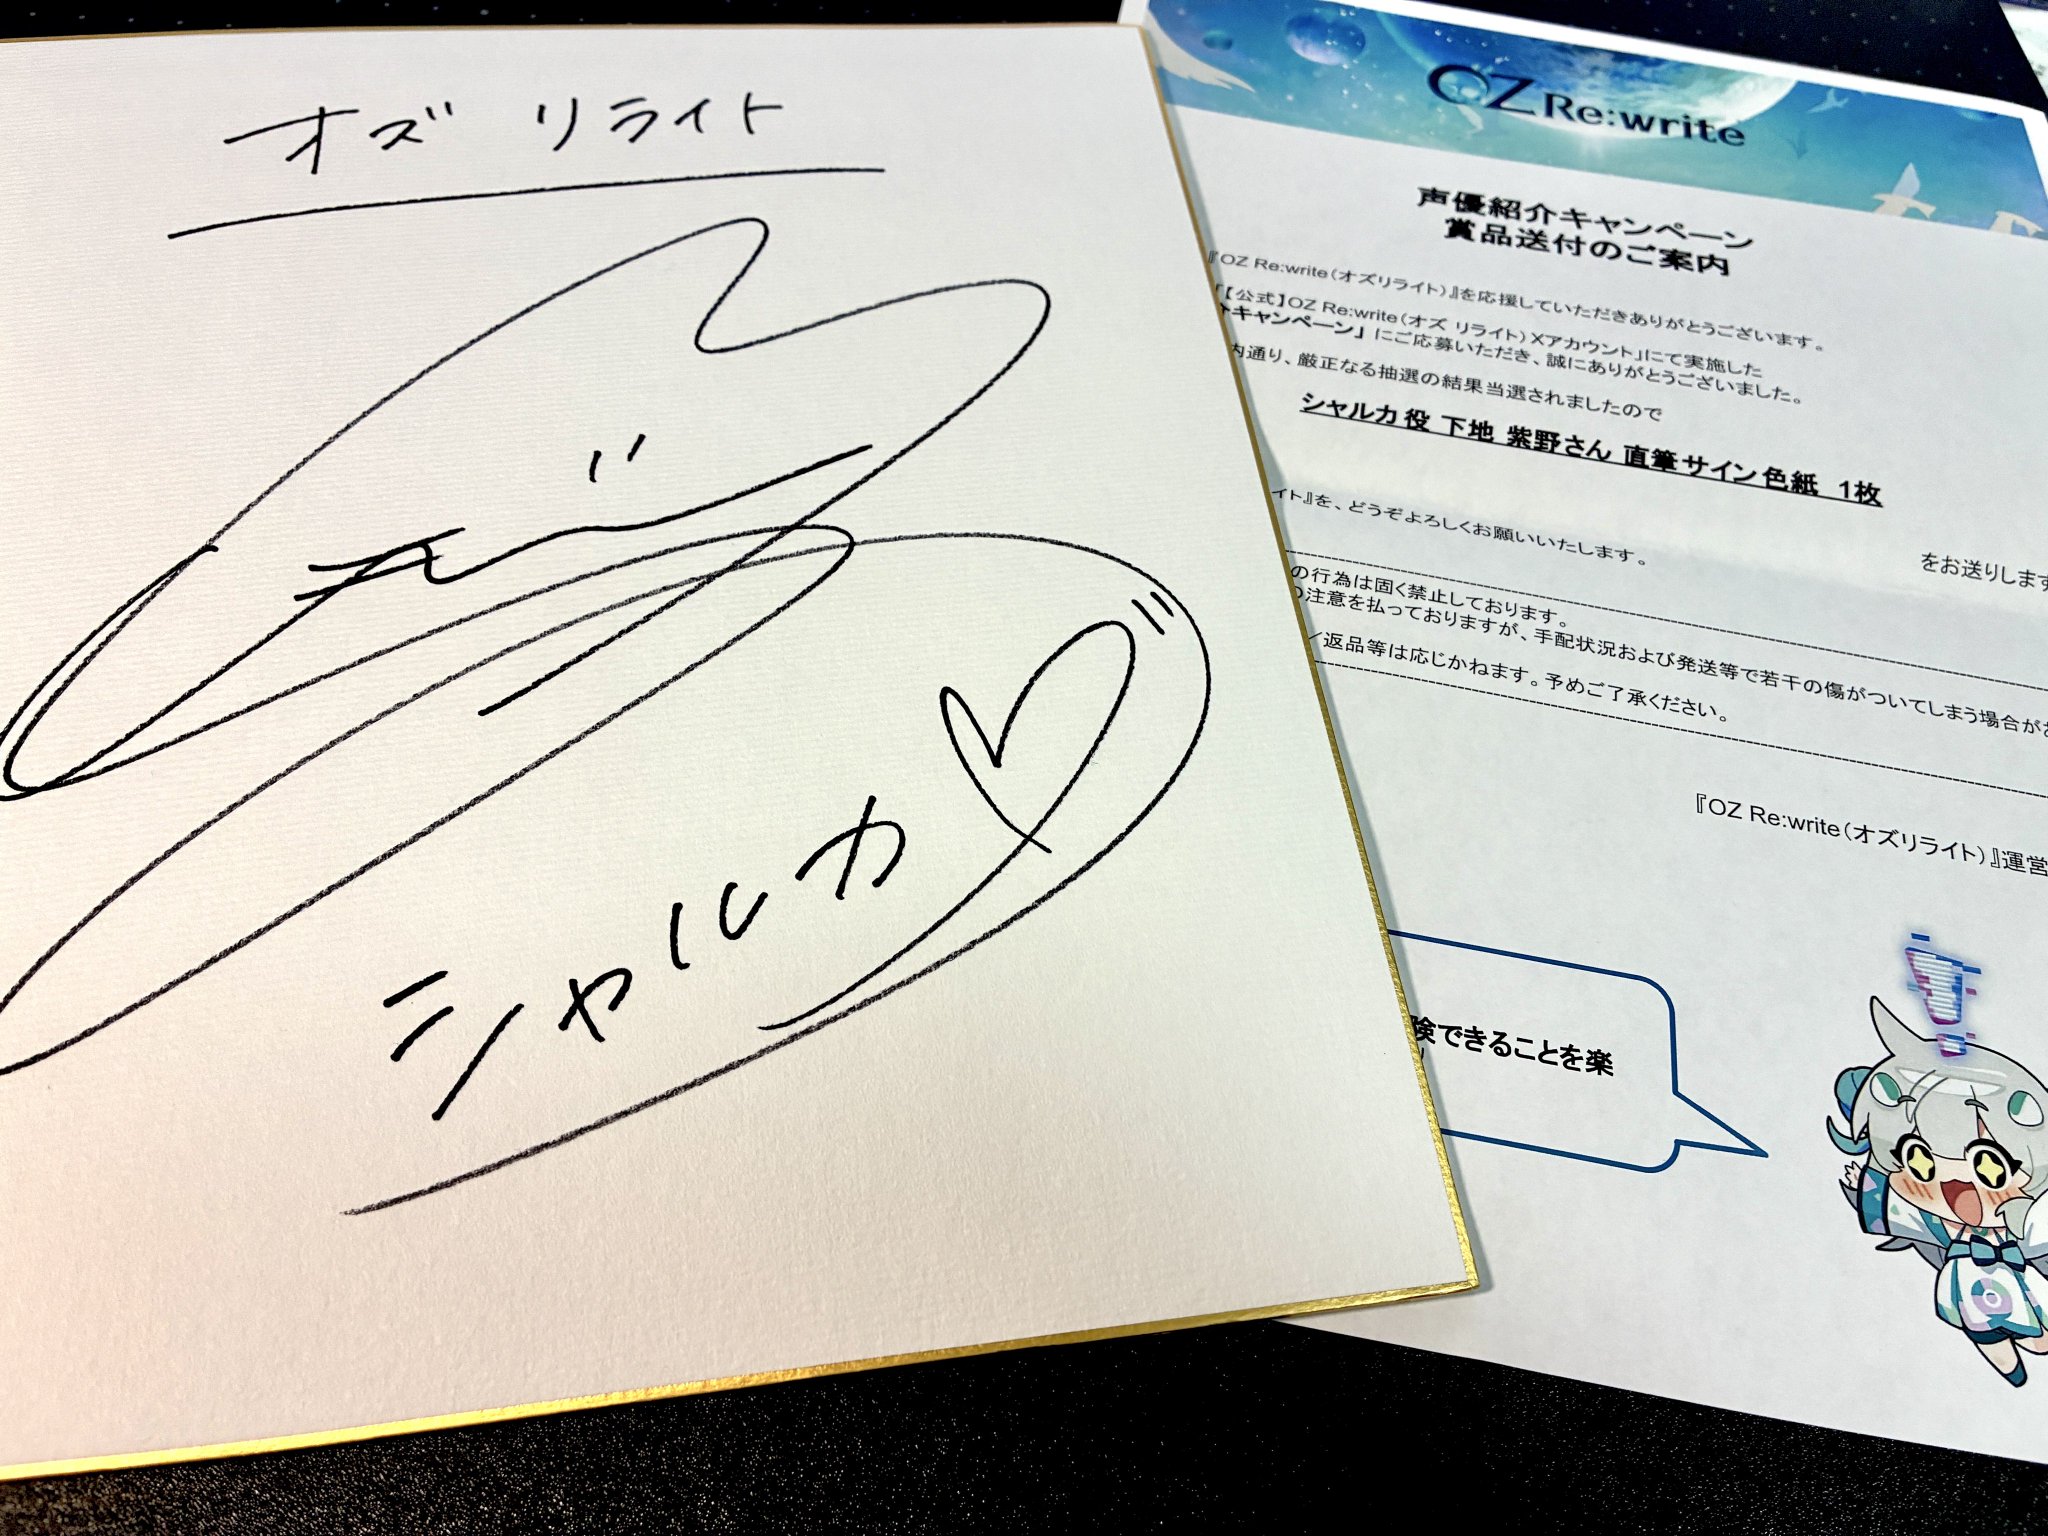 オズ リライト
シャルカ
OZ Re:write
声優紹介キャンペーン
賞品送付のご案内
『OZ Re:write(オズリライト)』を応援していただきありがとうございます。
「【公式】OZ Re:write(オズ リライト)Xアカウント」にて実施した
介キャンペーン」にご応募いただき、誠にありがとうございました。
内通り、厳正なる抽選の結果当選されましたので
シャルカ役 下地 紫野さん 直筆サイン色紙 1枚
をお送りします
イト』を、どうぞよろしくお願いいたします。
の行為は固く禁止しております。
の注意を払っておりますが、手配状況および発送等で若干の傷がついてしまう場合が
／返品等は応じかねます。予めご了承ください。
『OZ Re:write(オズリライト)』運営
険できることを楽